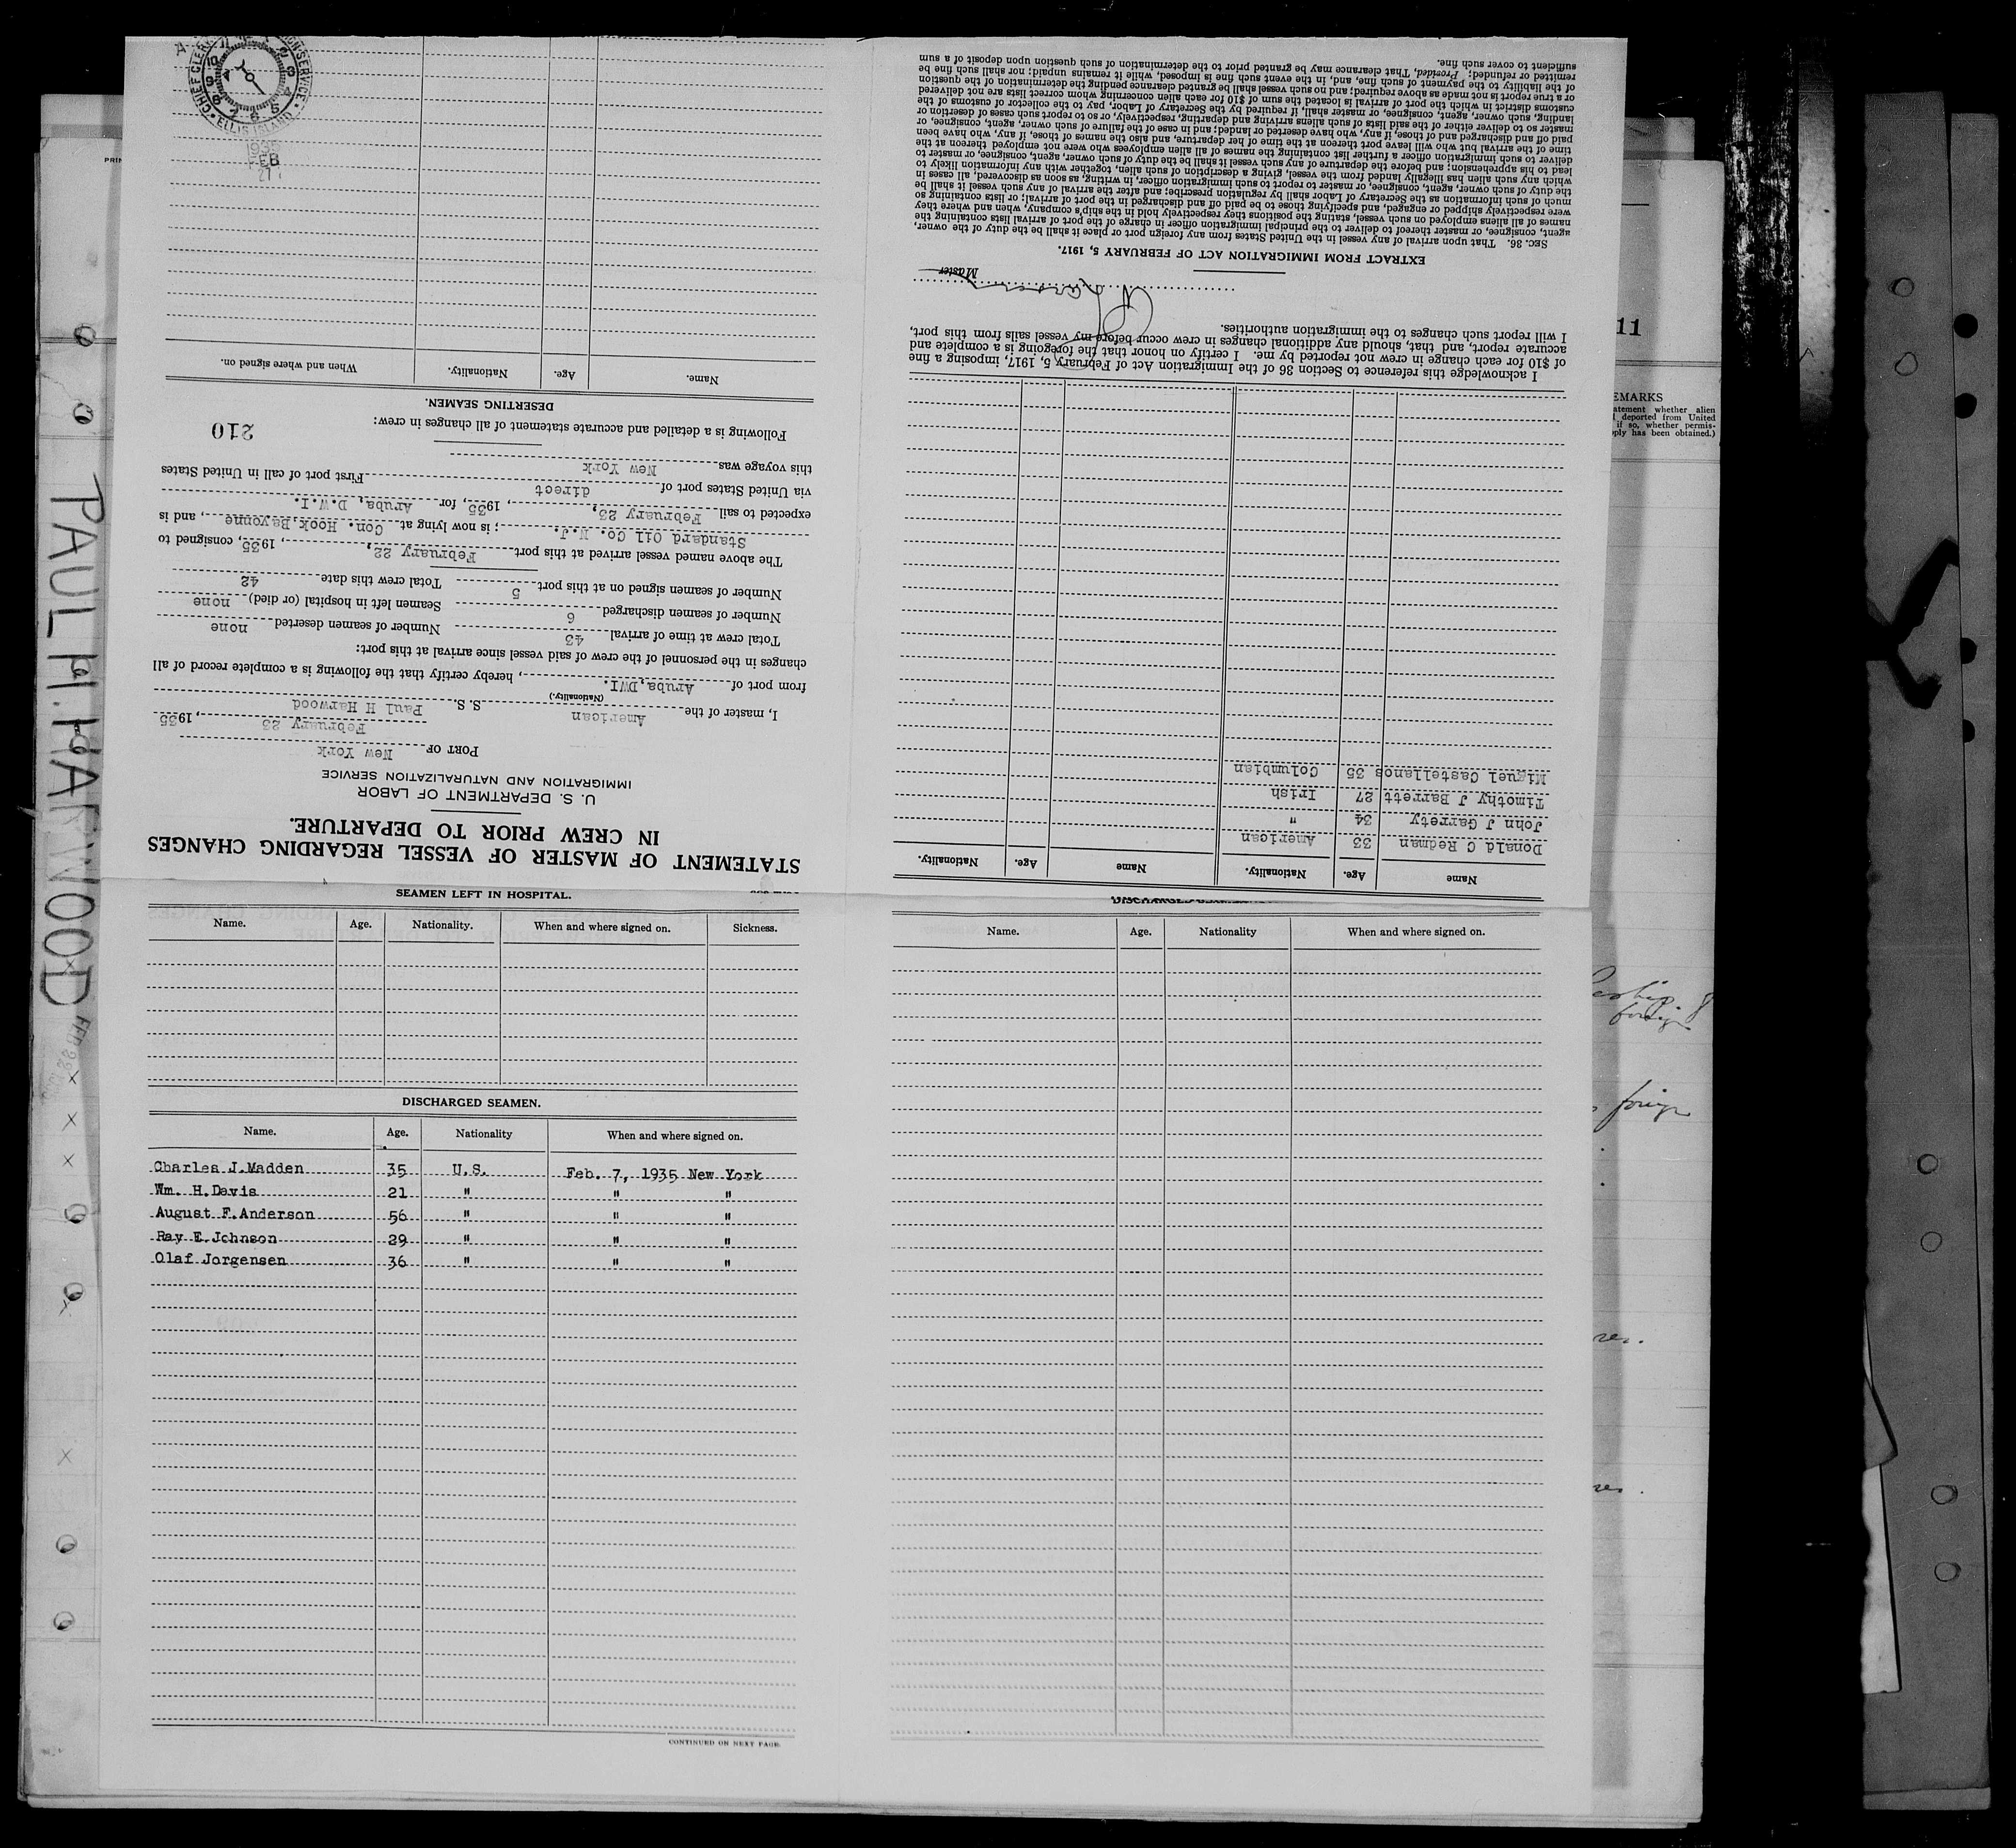 PAUL H. HARWOOD
11
EMARKS
atement whether alien
deported from United
if so, whether permis-
ply has been obtained.)
foreign
foreign
STATEMENT OF MASTER OF VESSEL REGARDING CHANGES
IN CREW PRIOR TO DEPARTURE.
U. S. DEPARTMENT OF LABOR
IMMIGRATION AND NATURALIZATION SERVICE
PORT OF New York
February 23, 1935
I, master of the American S. S. Paul H Harwood
(Nationality.)
from port of Aruba, DWI., hereby certify that the following is a complete record of all
changes in the personnel of the crew of said vessel since arrival at this port:
Total crew at time of arrival 43 Number of seamen deserted none
Number of seamen discharged 6 Seamen left in hospital (or died) none
Number of seamen signed on at this port 5 Total crew this date 42
The above named vessel arrived at this port February 22, 1935, consigned to
Standard Oil Co. N.J. ; is now lying at Con. Hook, Bayonne, and is
expected to sail February 23, 1935, for Aruba, D.W.I.
via United States port of direct First port of call in United States
this voyage was New York
Following is a detailed and accurate statement of all changes in crew:
210
DESERTING SEAMEN.
Name. Age. Nationality. When and where signed on.
CHIEF CLERK
ELLIS ISLAND
1935
FEB
27
SEAMEN LEFT IN HOSPITAL.
Name. Age. Nationality. When and where signed on. Sickness.
DISCHARGED SEAMEN.
Name. Age. Nationality When and where signed on.
Charles J. Madden 35 U.S. Feb. 7, 1935 New York
Wm. H. Davis 21 " " "
August F. Anderson 56 " " "
Ray E. Johnson 29 " " "
Olaf Jorgensen 36 " " "
CONTINUED ON NEXT PAGE.
Name. Age. Nationality When and where signed on.
Name Age. Nationality. Name Age. Nationality.
Donald C Redman 33 American
John J Garrety 34 "
Timothy J Barrett 27 Irish
Miguel Castellanos 35 Columbian
I acknowledge this reference to Section 36 of the Immigration Act of February 5, 1917, imposing a fine
of $10 for each change in crew not reported by me. I certify on honor that the foregoing is a complete and
accurate report, and that, should any additional changes in crew occur before my vessel sails from this port,
I will report such changes to the immigration authorities.
Master
EXTRACT FROM IMMIGRATION ACT OF FEBRUARY 5, 1917.
SEC. 36. That upon arrival of any vessel in the United States from any foreign port or place it shall be the duty of the owner,
agent, consignee, or master thereof to deliver to the principal immigration officer in charge of the port of arrival lists containing the
names of all aliens employed on such vessel, stating the positions they respectively hold in the ship's company, when and where they
were respectively shipped or engaged, and specifying those to be paid off and discharged in the port of arrival; or lists containing so
much of such information as the Secretary of Labor shall by regulation prescribe; and after the arrival of any such vessel it shall be
the duty of such owner, agent, consignee, or master to report to such immigration officer, in writing, as soon as discovered, all cases in
which any such alien has illegally landed from the vessel, giving a description of such alien, together with any information likely to
lead to his apprehension; and before the departure of any such vessel it shall be the duty of such owner, agent, consignee, or master to
deliver to such immigration officer a further list containing the names of all alien employees who were not employed thereon at the
time of the arrival but who will leave port thereon at the time of her departure, and also the names of those, if any, who have been
paid off and discharged and of those, if any, who have deserted or landed; and in case of the failure of such owner, agent, consignee, or
master so to deliver either of the said lists of such aliens arriving and departing, respectively, or so to report such cases of desertion or
landing, such owner, agent, consignee, or master shall, if required by the Secretary of Labor, pay to the collector of customs of the
customs district in which the port of arrival is located the sum of $10 for each alien concerning whom correct lists are not delivered
or a true report is not made as above required; and no such vessel shall be granted clearance pending the determination of the question
of the liability to the payment of such fine, and, in the event such fine is imposed, while it remains unpaid; nor shall such fine be
remitted or refunded; Provided, That clearance may be granted prior to the determination of such question upon deposit of a sum
sufficient to cover such fine.